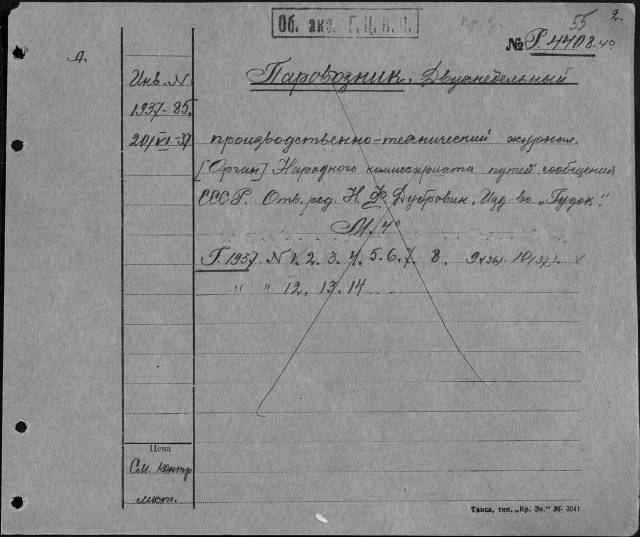 Об. экз. Г.Ц.К.П.
55
2.
№ Р. 4408. 4°
А.
Инв. N
1937-85.
20/VI-37
Паровозник. Двухнедельный
производственно-технический журнал.
[Орган] Народного комиссариата путей сообщения
СССР. Отв. ред. Н. Ф. Дубровин. Изд-во „Гудок“.
М. 4°
Г. 1937 N 1. 2. 3. 4. 5. 6. 7. 8. 9(36). 10(37).
" " 12. 13. 14
Цена
См. контр
лист.
Томск, тип. „Кр. Зн.“ Зб. 3041